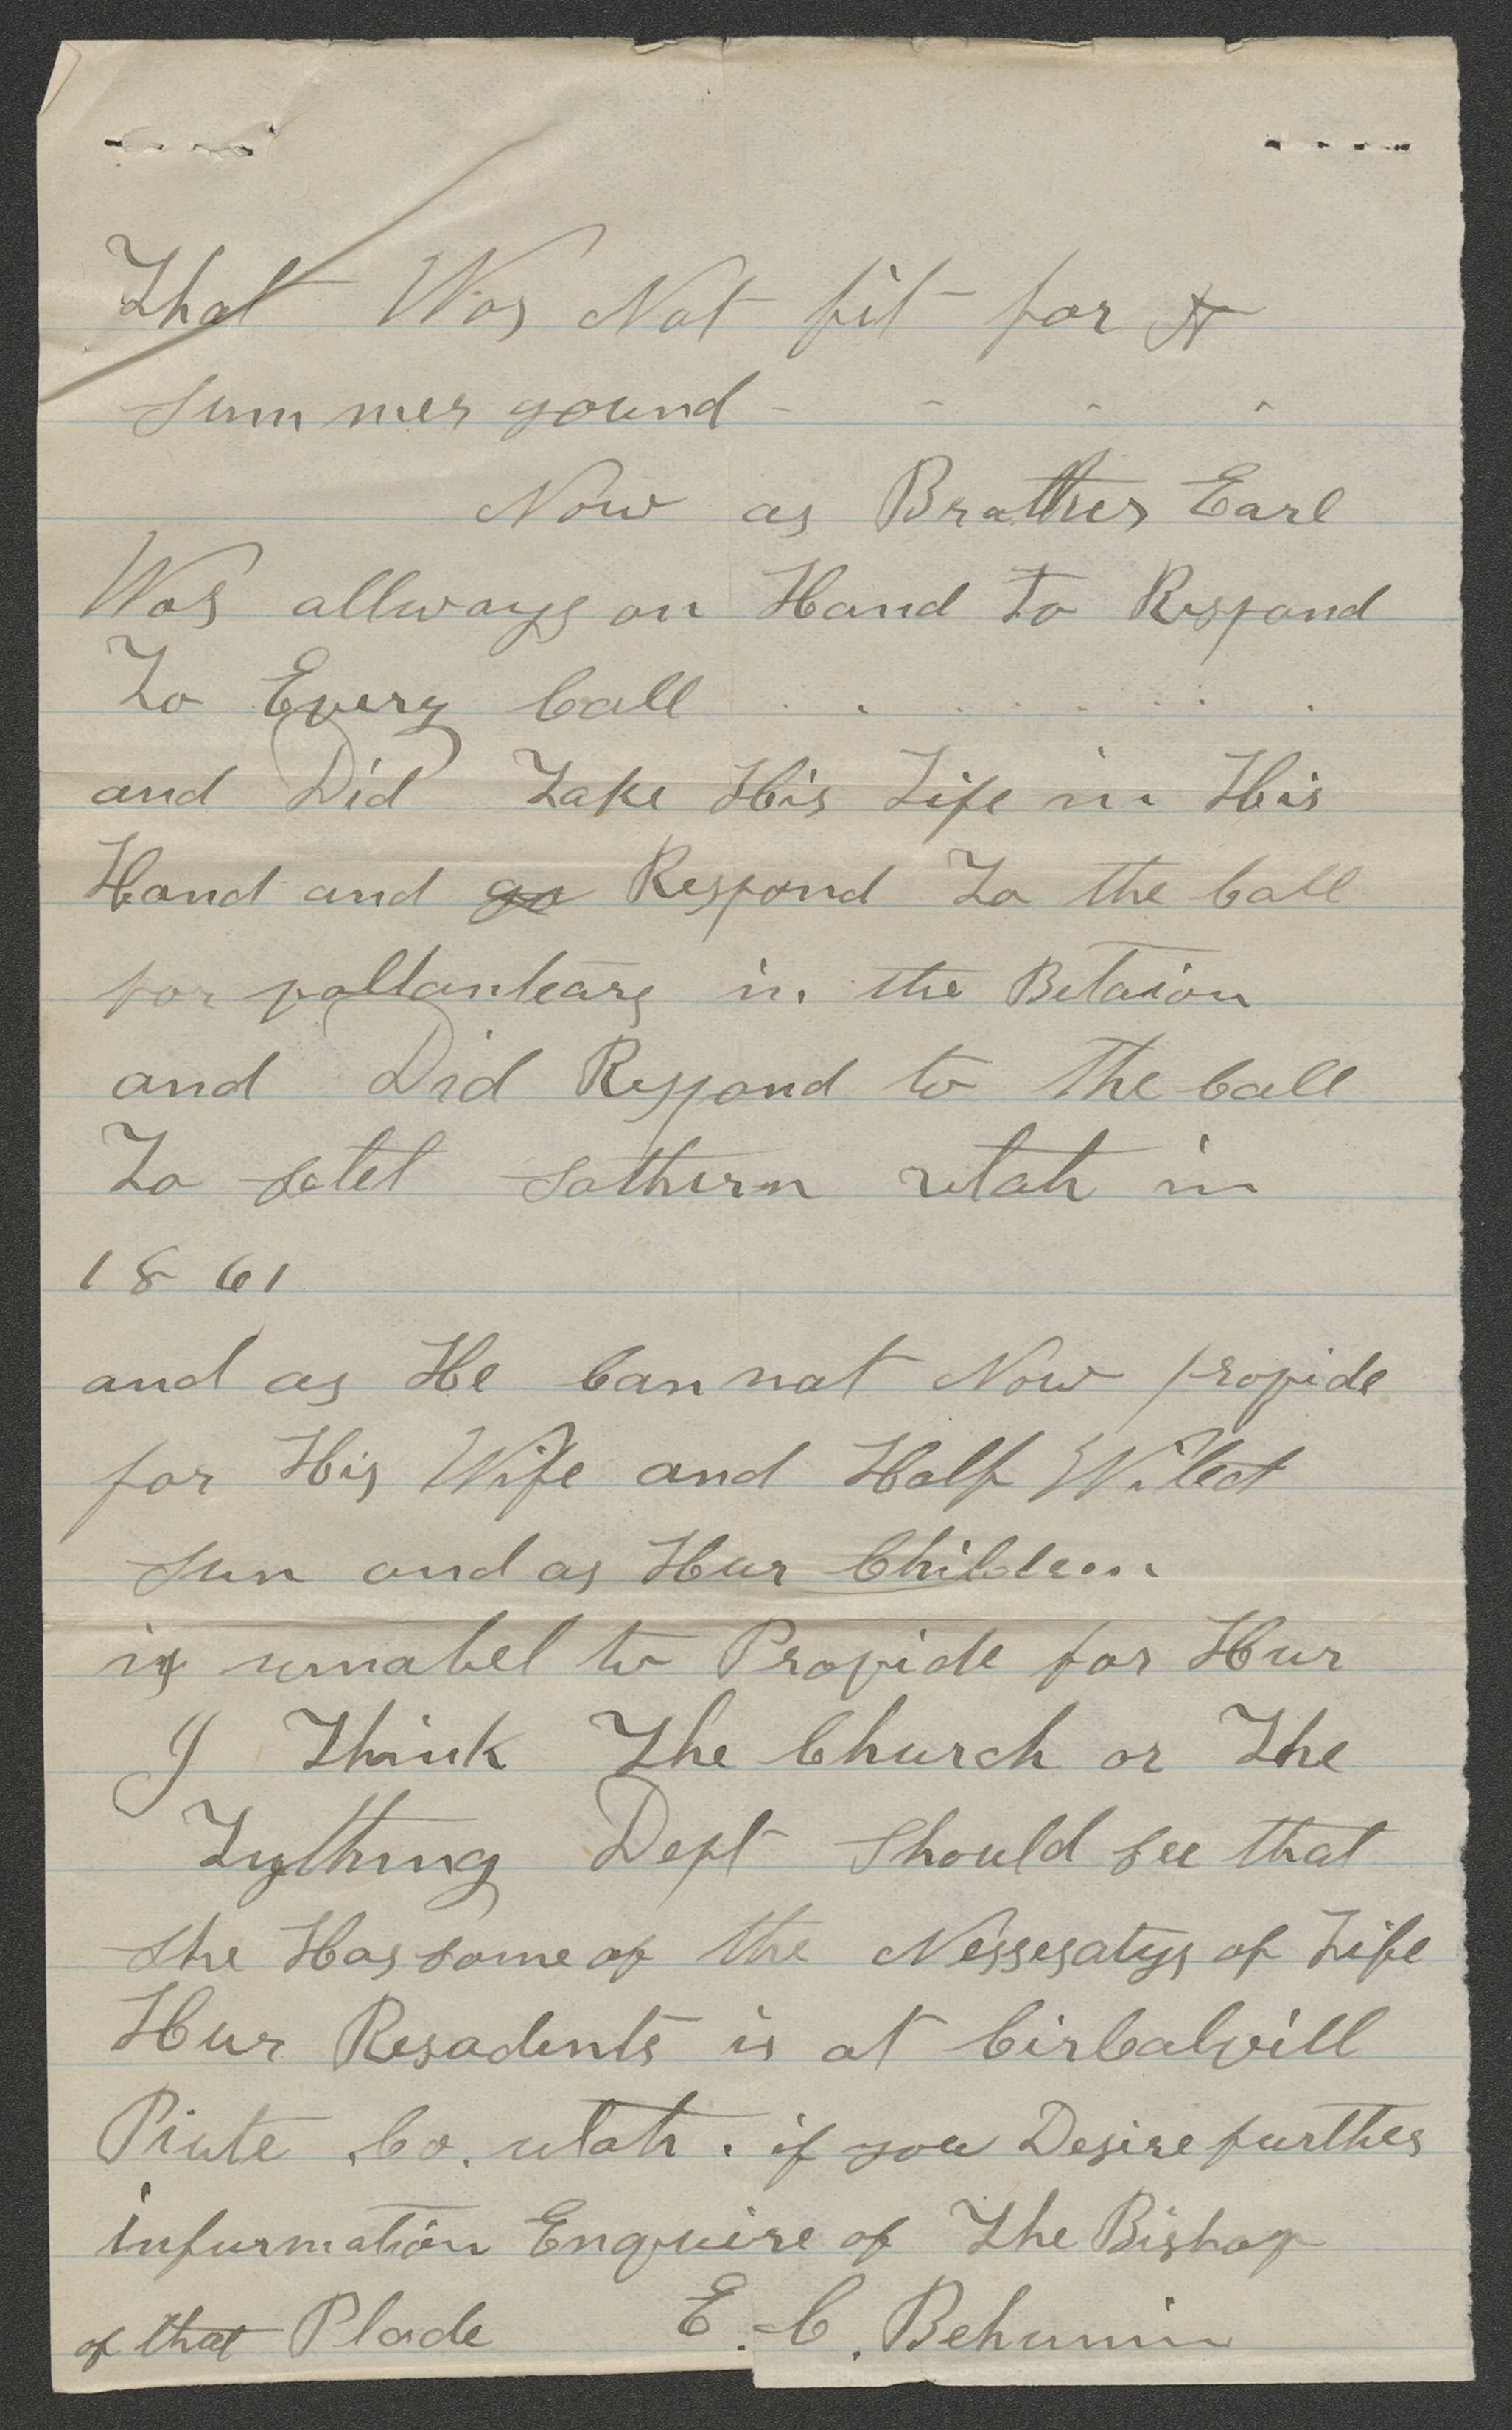 That Was Not fit for A
summer gound - - - -
Now as Brother Earl
Was allways on Hand To Respond
To Every Call . . . . . . . .
and Did Take His Life in His
Hand and go Respond To the Call
for vollantears in the Betaion
and Did Respond to The Call
To setel sothern utah in
1861
and as He Can not Now provide
for His Wife and Half Wited
sun and as Hur Children
is unabel to Provide for Hur
I Think The Church or The
Tything Dept should see that
she Has some of the Nessesatys of Life
Hur Resadents is at CirCalvill
Piute Co. utah . if you Desire further
infurmation Enquire of The Bishop
of that Plade E. C. Behunin